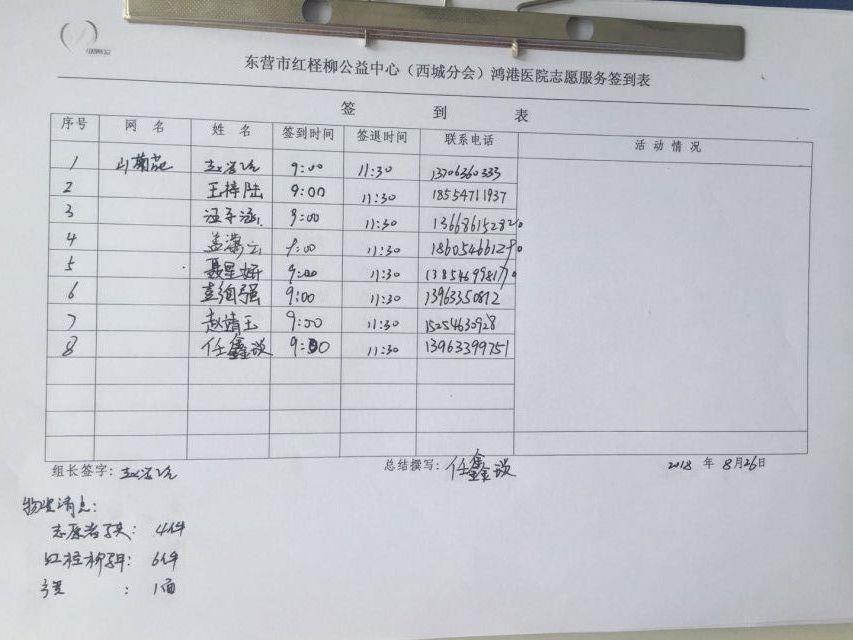 东营市红柽柳公益中心（西城分会）鸿港医院志愿服务签到表
签 到 表
序号 网 名 姓 名 签到时间 签退时间 联系电话 活 动 情 况
1 山菊花 9:00 11:30 13706360333
2 王梓陆 9:00 11:30 18554711937
3 汪子涵 9:00 11:30
4 9:00 11:30
5 聂星妍 9:00 11:30
6 9:00 11:30 13963350812
7 赵靖玉 9:00 11:30 15254630928
8 任鑫谈 9:00 11:30 13963399751
组长签字: 总结撰写: 任鑫谈 2018 年 8月26日
物资清点:
志愿者马夹: 4件
红柽柳马甲: 6件
: 1面